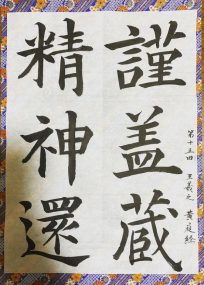 第十五回 王羲之 黄庭経
謹盖蔵
精神還